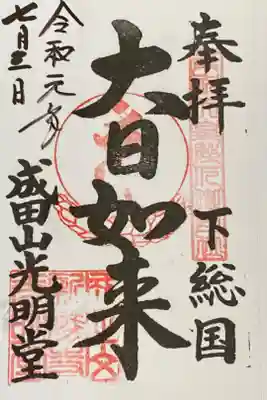 奉拝
下総国
大日如来
令和元年
七月三日
成田山光明堂